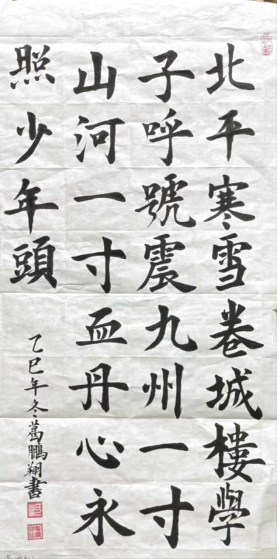 北平寒雪卷城樓學
子呼號震九州一寸
山河一寸血丹心永
照少年頭
乙巳年冬葛鵬翔書